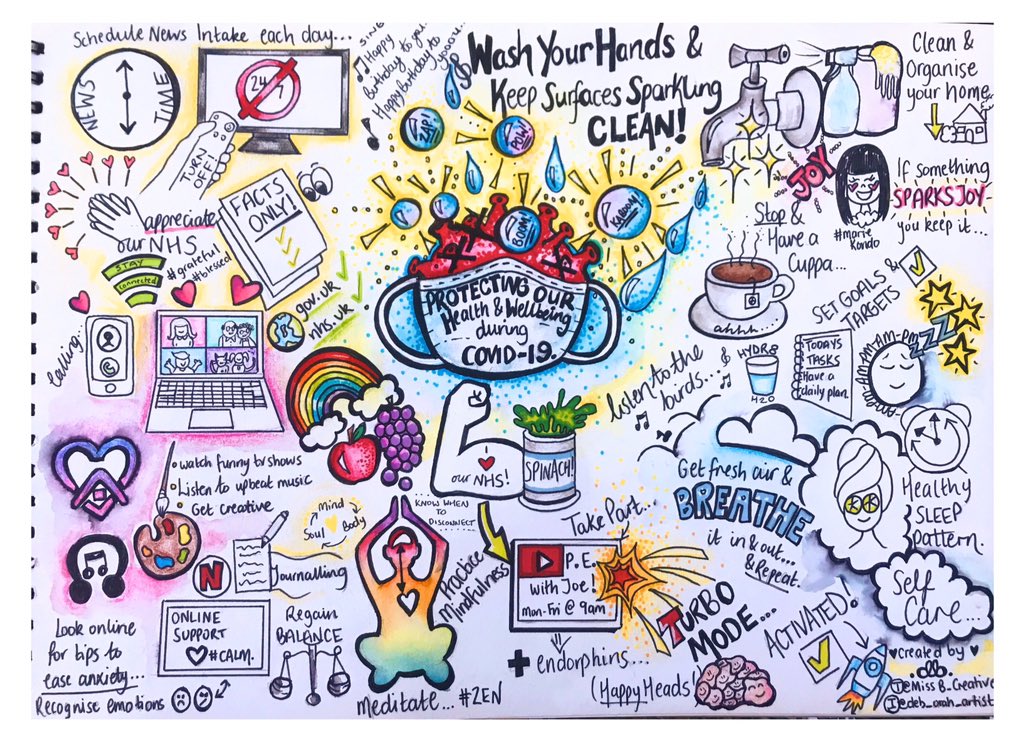 Schedule News Intake each day...
NEWS
TIME
24
7
TURN
OFF!
SING
Happy
Birthday to you
Happy birthday to
yoouu..
Wash Your Hands &
Keep Surfaces Sparkling
CLEAN!
Clean &
Organise
your home
JOY
#marie
Kondo
If something
SPARKS JOY
you keep it...
appreciate
our NHS
#grateful
#blessed
FACTS
ONLY!
gov.uk
nhs.uk
STAY
Connected
ZAP!
POW!
BOOM!
KABOOM!
PROTECTING OUR
Health & Wellbeing
during
COVID-19.
Stop &
Have a
Cuppa...
ahhh...
SET GOALS &
TARGETS
TODAYS
TASKS
Have a
daily plan.
HYDR8
H2O
&
listen to the
birds...
am-pm
ZZZ
Healthy
SLEEP
pattern.
watch funny tv shows
Listen to upbeat music
Get creative
our NHS!
SPINACH!
KNOW WHEN
TO
DISCONNECT
Get fresh air &
BREATHE
it in & out....
& Repeat.
Self
Care...
Mind
Body
Soul
N
Journalling
Practice
Mindfulness
Take Part...
P.E.
with Joe!
Mon-Fri @ 9am
+ endorphins...
(Happy Heads!)
TURBO
MODE...
ACTIVATED!
ONLINE
SUPPORT
#CALM.
Regain
BALANCE
Meditate... #ZEN
Look online
for tips to
ease anxiety...
Recognise emotions
created by
@Miss_B_Creative
@deb_orah_artist